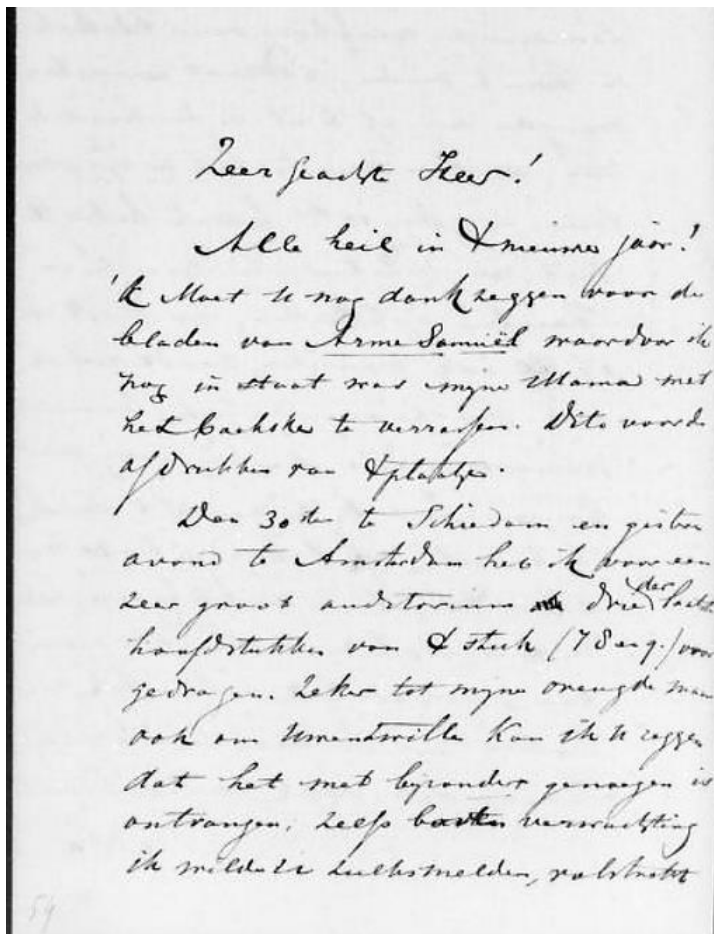 Zeer geachte Heer!
Alle heil in 't nieuwe jaar!
'k Moet u nog dank zeggen voor de
bladen van Arme Samuël waardoor ik
nog in staat was mijne Mama met
het boekske te verrassen. Dito voor de
afdrukken van 't plaatje.
Den 30sten te Schiedam en gisteren
avond te Amsterdam heb ik voor een
zeer groot auditorium drie der laatste
hoofdstukken van 't stuk (7 8 en 9.) voor
gedragen. Zeker tot mijne vreugde maar
ook om Uwentwille kan ik u zeggen
dat het met bijzonder genoegen is
ontvangen, zelfs boven verwachting
ik wilde u zulks melden, volstrekt
54